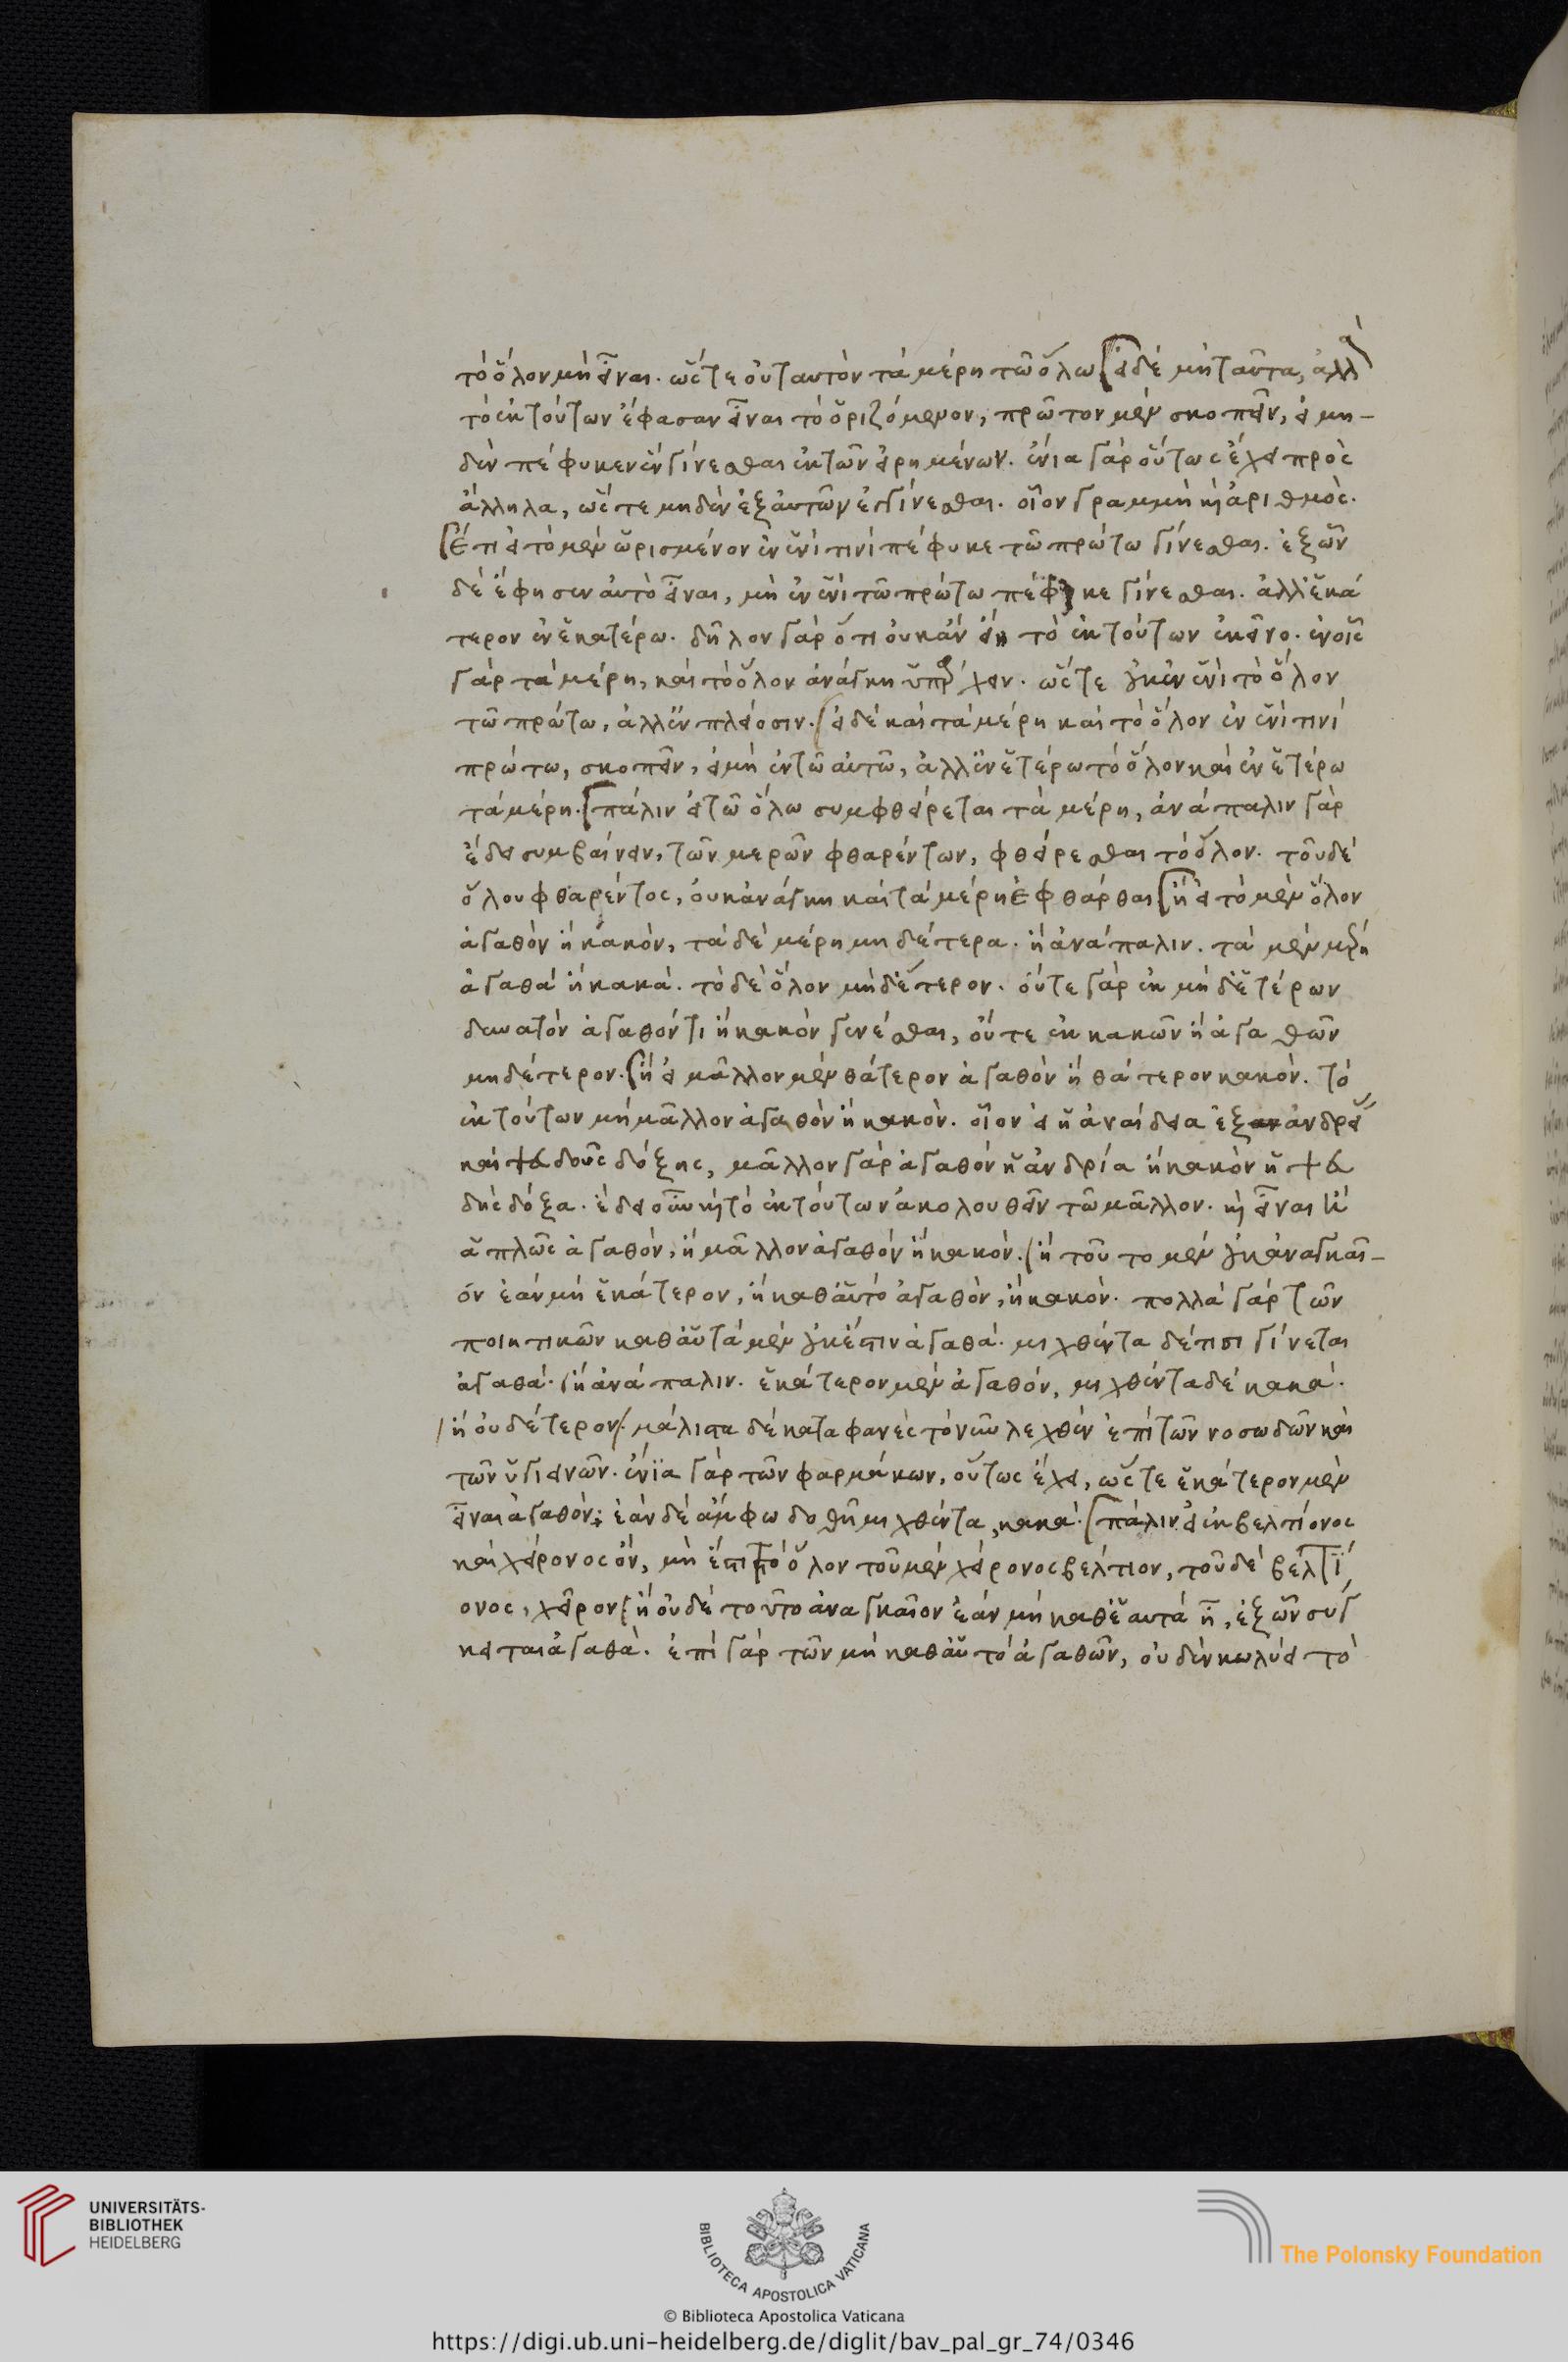 τὸ ὅλον μὴ εἶναι. ὥστε οὐ ταυτὸν τὰ μέρη τῶ ὅλω. εἰ δὲ μὴ ταῦτα, ἀλλὰ
τὸ ἐκ τούτων ἔφασαν εἶναι τὸ ὁριζόμενον, πρῶτον μὲν σκοπεῖν, εἰ μη-
δὲν πέφυκεν ἓν γίνεσθαι ἐκ τῶν εἰρημένων. ἔνια γὰρ οὕτως ἔχει πρὸς
ἄλληλα, ὥστε μηδὲν ἐξ αὐτῶν ἓν γίνεσθαι. οἷον γραμμὴ καὶ ἀριθμὸς.
Ἔτι εἰ τὸ μὲν ὡρισμένον ἐν ἑνί τινι πέφυκε τῶ πρώτω γίνεσθαι. ἐξ ὧν
δὲ ἔφησεν αὐτὸ εἶναι, μὴ ἐν ἑνὶ τῶ πρώτω πέφυκε γίνεσθαι. ἀλλ' ἑκά
τερον ἐν ἑκατέρω. δῆλον γὰρ ὅτι οὐκ ἂν εἴη τὸ ἐκ τούτων ἐκεῖνο. ἐν οἷς
γὰρ τὰ μέρη, καὶ τὸ ὅλον ἀνάγκη ὑπάρχειν. ὥστε οὐκ ἐν ἑνὶ τὸ ὅλον
τῶ πρώτω, ἀλλ' ἐν πλείοσιν. εἰ δὲ καὶ τὰ μέρη καὶ τὸ ὅλον ἐν ἑνί τινι
πρώτω, σκοπεῖν, εἰ μὴ ἐν τῶ αὐτῶ, ἀλλ' ἐν ἑτέρω τὸ ὅλον καὶ ἐν ἑτέρω
τὰ μέρη. πάλιν εἰ τῶ ὅλω συμφθείρεται τὰ μέρη, ἀνάπαλιν γὰρ
ἔδει συμβαίνειν, τῶν μερῶν φθαρέντων, φθείρεσθαι τὸ ὅλον. τοῦ δὲ
ὅλου φθαρέντος, οὐκ ἀνάγκη καὶ τὰ μέρη ἐφθάρθαι. ἢ εἰ τὸ μὲν ὅλον
ἀγαθὸν ἢ κακὸν, τὰ δὲ μέρη μηδέτερα. ἢ ἀνάπαλιν. τὰ μὲν μέρη
ἀγαθὰ ἢ κακὰ. τὸ δὲ ὅλον μηδέτερον. οὔτε γὰρ ἐκ μηδετέρων
δυνατὸν ἀγαθόν τι ἢ κακὸν γενέσθαι, οὔτε ἐκ κακῶν ἢ ἀγαθῶν
μηδέτερον. ἢ εἰ μᾶλλον μὲν θάτερον ἀγαθὸν ἢ θάτερον κακὸν. τὸ
ἐκ τούτων μὴ μᾶλλον ἀγαθὸν ἢ κακὸν. οἷον εἰ ἡ ἀναίδεια ἐξ ἀνδρεί
καὶ ψευδοῦς δόξης, μᾶλλον γὰρ ἀγαθὸν ἡ ἀνδρία ἢ κακὸν ἡ ψευ
δὴς δόξα. ἔδει οὖν καὶ τὸ ἐκ τούτων ἀκολουθεῖν τῶ μᾶλλον. καὶ εἶναι ἢ
ἁπλῶς ἀγαθὸν, ἢ μᾶλλον ἀγαθὸν ἢ κακὸν. ἢ τοῦτο μὲν οὐκ ἀναγκαῖ-
όν ἐὰν μὴ ἑκάτερον, ἢ καθ' αὑτὸ ἀγαθὸν, ἢ κακὸν. πολλὰ γὰρ τῶν
ποιητικῶν καθ' αὑτὰ μὲν οὐκ ἔστιν ἀγαθὰ. μιχθέντα δέ τισι γίνεται
ἀγαθὰ. ἢ ἀνάπαλιν. ἑκάτερον μὲν ἀγαθόν, μιχθέντα δὲ κακὰ.
ἢ οὐδέτερον. μάλιστα δὲ καταφανὲς τὸ νῦν λεχθὲν ἐπὶ τῶν νοσωδῶν καὶ
τῶν ὑγιεινῶν. ἔνια γὰρ τῶν φαρμάκων, οὕτως ἔχει, ὥστε ἑκάτερον μὲν
εἶναι ἀγαθὸν; ἐὰν δὲ ἄμφω δοθῆ μιχθέντα, κακὰ. πάλιν εἰ ἐκ βελτίονος
καὶ χείρονος ὂν, μὴ ἔστι τὸ ὅλον τοῦ μὲν χείρονος βέλτιον, τοῦ δὲ βελτί
ονος, χεῖρον. ἢ οὐδὲ τοῦτο ἀναγκαῖον ἐὰν μὴ καθ' ἑαυτὰ ἦ, ἐξ ὧν σύγ
κειται ἀγαθὰ. ἐπὶ γὰρ τῶν μὴ καθ' αὑτὸ ἀγαθῶν, οὐδὲν κωλύει τὸ
UNIVERSITÄTS-
BIBLIOTHEK
HEIDELBERG
BIBLIOTECA APOSTOLICA VATICANA
The Polonsky Foundation
© Biblioteca Apostolica Vaticana
https://digi.ub.uni-heidelberg.de/diglit/bav_pal_gr_74/0346